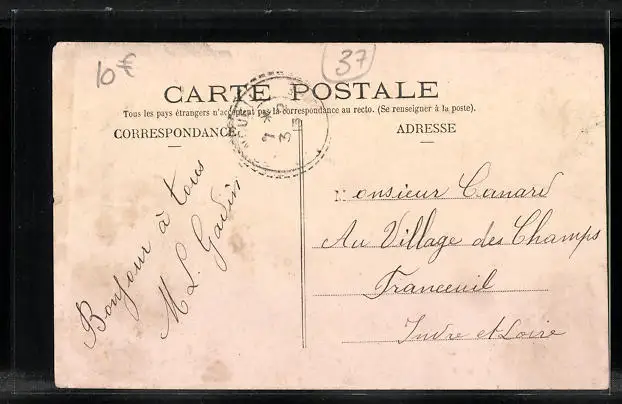 6€
37
CARTE POSTALE
Tous les pays étrangers n'acceptent pas la correspondance au recto. (Se renseigner à la poste).
CORRESPONDANCE
ADRESSE
Bonjour à tous
M L. Gavin
Monsieur Canard
Au Village des Champs
Francueil
Indre et Loire